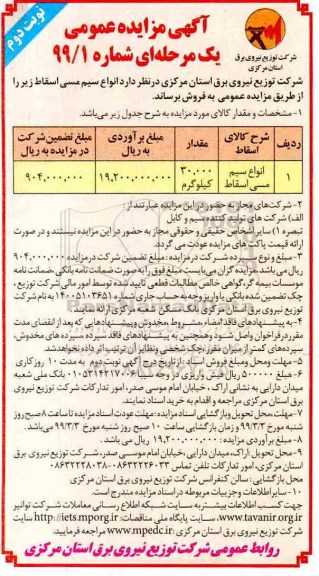 نوبت دوم
آگهی مزایده عمومی
یک مرحله‌ای شماره ۹۹/۱
شرکت توزیع نیروی برق
استان مرکزی
شرکت توزیع نیروی برق استان مرکزی درنظر دارد انواع سیم مسی اسقاط زیر را
از طریق مزایده عمومی به فروش برساند.
۱- مشخصات و مقدار کالای مورد مزایده به شرح جدول زیر می‌باشد.
ردیف شرح کالای اسقاط مقدار مبلغ برآوردی به ریال مبلغ تضمین شرکت در مزایده به ریال
۱ انواع سیم مسی اسقاط ۳۰,۰۰۰ کیلوگرم ۱۹,۲۰۰,۰۰۰,۰۰۰ ۹۰۴,۰۰۰,۰۰۰
۲- شرکت‌های مجاز به حضور در این مزایده عبارتند از:
الف) شرکت های تولید کننده سیم و کابل
تبصره ۱) سایر اشخاص حقیقی و حقوقی مجاز به حضور در این مزایده نیستند و در صورت
ارائه قیمت پاکت های مزایده عودت می گردد.
۳- مبلغ و نوع سپرده شرکت در مزایده: مبلغ تضمین شرکت در مزایده ۹۰۴,۰۰۰,۰۰۰
ریال می باشد. مزایده گران می بایست مبلغ فوق را به صورت ضمانت نامه بانکی، ضمانت نامه
موسسات بیمه گر، گواهی خالص مطالبات قطعی تایید شده توسط امور مالی شرکت توزیع،
چک تضمین شده بانکی یا واریز وجه به حساب جاری شماره ۱۴۰۰۵۱۰۳۶۵۱ به نام شرکت
توزیع نیروی برق استان مرکزی بانک مسکن شعبه مرکزی ارائه نمایند.
۴- به پیشنهادهای فاقد امضاء، مشروط، مخدوش و پیشنهادهایی که بعد از انقضای مدت
مقرر در فراخوان واصل شود و همچنین به پیشنهادهای فاقد سپرده، سپرده های مخدوش،
سپرده‌های کمتر از میزان مقرر، چک شخصی و نظایر آن ترتیب اثر داده نخواهد شد.
۵- مهلت و محل فروش اسناد: از تاریخ درج آگهی نوبت دوم به مدت ۱۰ روز کاری
۶- مبلغ ۵۰۰۰۰۰ ریال فیش واریزی در وجه سیبا ۰۱۰۵۳۱۴۲۱۷۰۰۶ بانک ملی شعبه
میدان دارایی به نشانی اراک، خیابان امام موسی صدر، امور تدارکات شرکت توزیع نیروی
برق استان مرکزی مراجعه و اقدام به خرید اسناد نمایند.
۷- مهلت، محل تحویل و بازگشایی اسناد مزایده: مهلت عودت اسناد مزایده تا ساعت ۸ صبح روز
شنبه مورخ ۹۹/۳/۳ و زمان بازگشایی ساعت ۱۰ صبح روز شنبه مورخ ۹۹/۳/۳ می‌باشد.
۸- مبلغ برآوردی مزایده: ۱۹,۲۰۰,۰۰۰,۰۰۰ ریال می باشد.
۹- محل تحویل: اراک، میدان دارایی، خیابان امام موسی صدر، شرکت توزیع نیروی برق
استان مرکزی، امور تدارکات تلفن تماس ۰۸۶۳۲۲۲۶۰۳۳-۰۸۶۳۲۲۲۸۰۳۸
محل بازگشایی: سالن کنفرانس شرکت توزیع نیروی برق استان مرکزی
۱۰- سایر اطلاعات و جزییات مربوطه در اسناد مزایده مندرج است.
جهت کسب اطلاعات بیشتر به سایت شبکه اطلاع رسانی معاملات شرکت توانیر
www.tavanir.org.ir، سایت پایگاه ملی مناقصات: http://iets.mporg.ir سایت
شرکت توزیع نیروی برق استان مرکزی: www.mpedc.ir مراجعه فرمایید.
روابط عمومی شرکت توزیع نیروی برق استان مرکزی